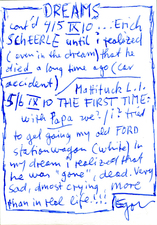 DREAMS
Cont'd 4/5 IX 10 ... Erich
SCHEERLE until i realized
(even in the dream) that he
died a long time ago (car
accident)
Mattituck L.I.
5/6 IX 10 THE FIRST TIME:
with Papa we?/i? tried
to get going my old FORD
stationwagon (white) In
my dream i realized that
he was "gone", dead. Very
sad, almost crying, more
than in real life!!!